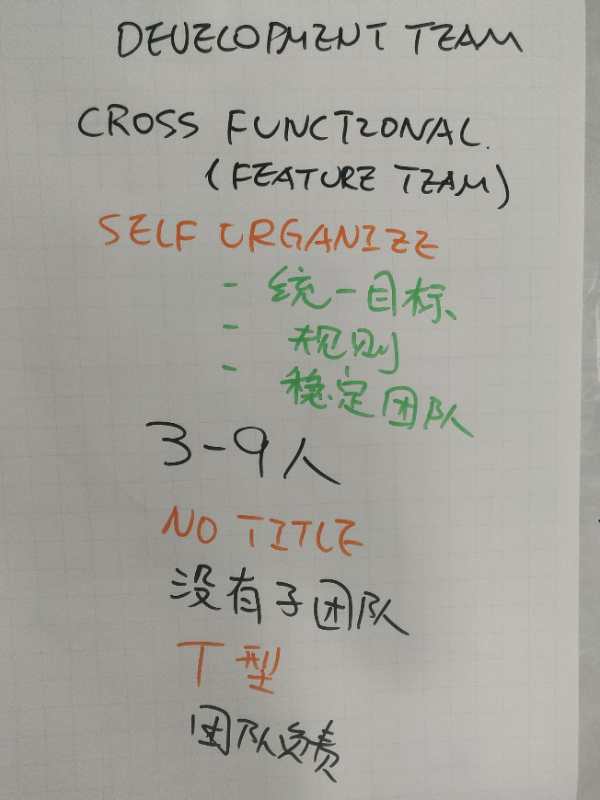 DEVELOPMENT TEAM
CROSS FUNCTIONAL.
(FEATURE TEAM)
SELF ORGANIZE
- 统一目标、
- 规则
- 稳定团队
3-9人
NO TITLE
没有子团队
T型
团队负责